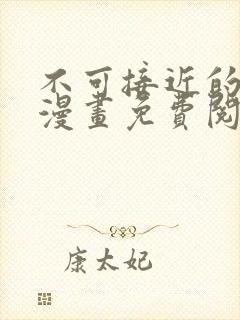 不可接近的
漫畫免費閱
康太妃